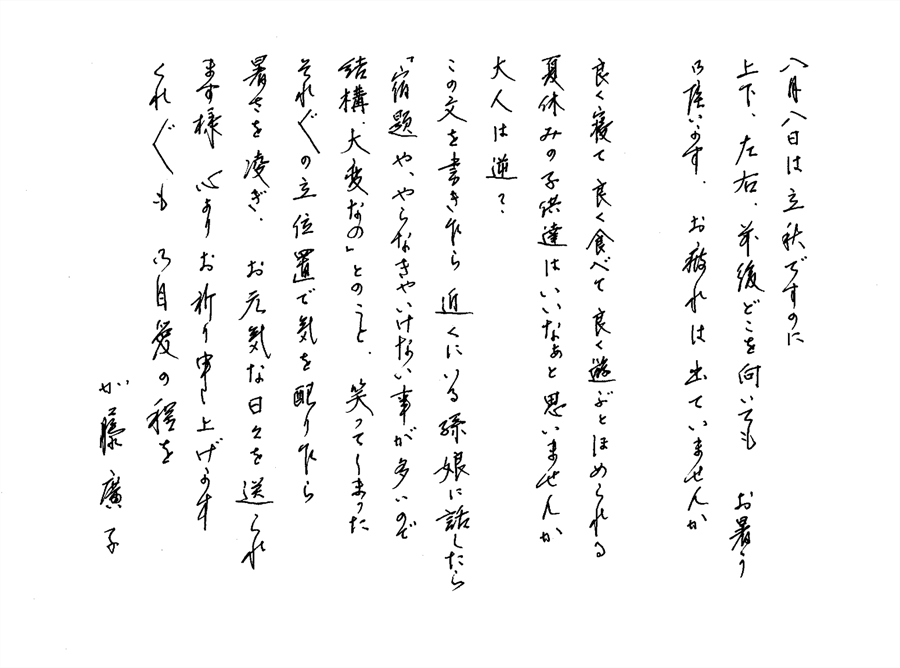 八月八日は立秋ですのに
上下、左右、前後どこを向いても お暑う
御座います。お疲れは出ていませんか
良く寝て 良く食べて 良く遊ぶとほめられる
夏休みの子供達はいいなぁと思いませんか
大人は逆？
この文を書き乍ら 近くにいる孫娘に話したら
「宿題や、やらなきゃいけない事が多いので
結構、大変なの」とのこと、笑ってしまった
それ〲の立位置で気を配り乍ら
暑さを凌ぎ、お元気な日々を送られ
ます様 心よりお祈り申し上げます
くれ〲も 御自愛の程を
加藤廣子